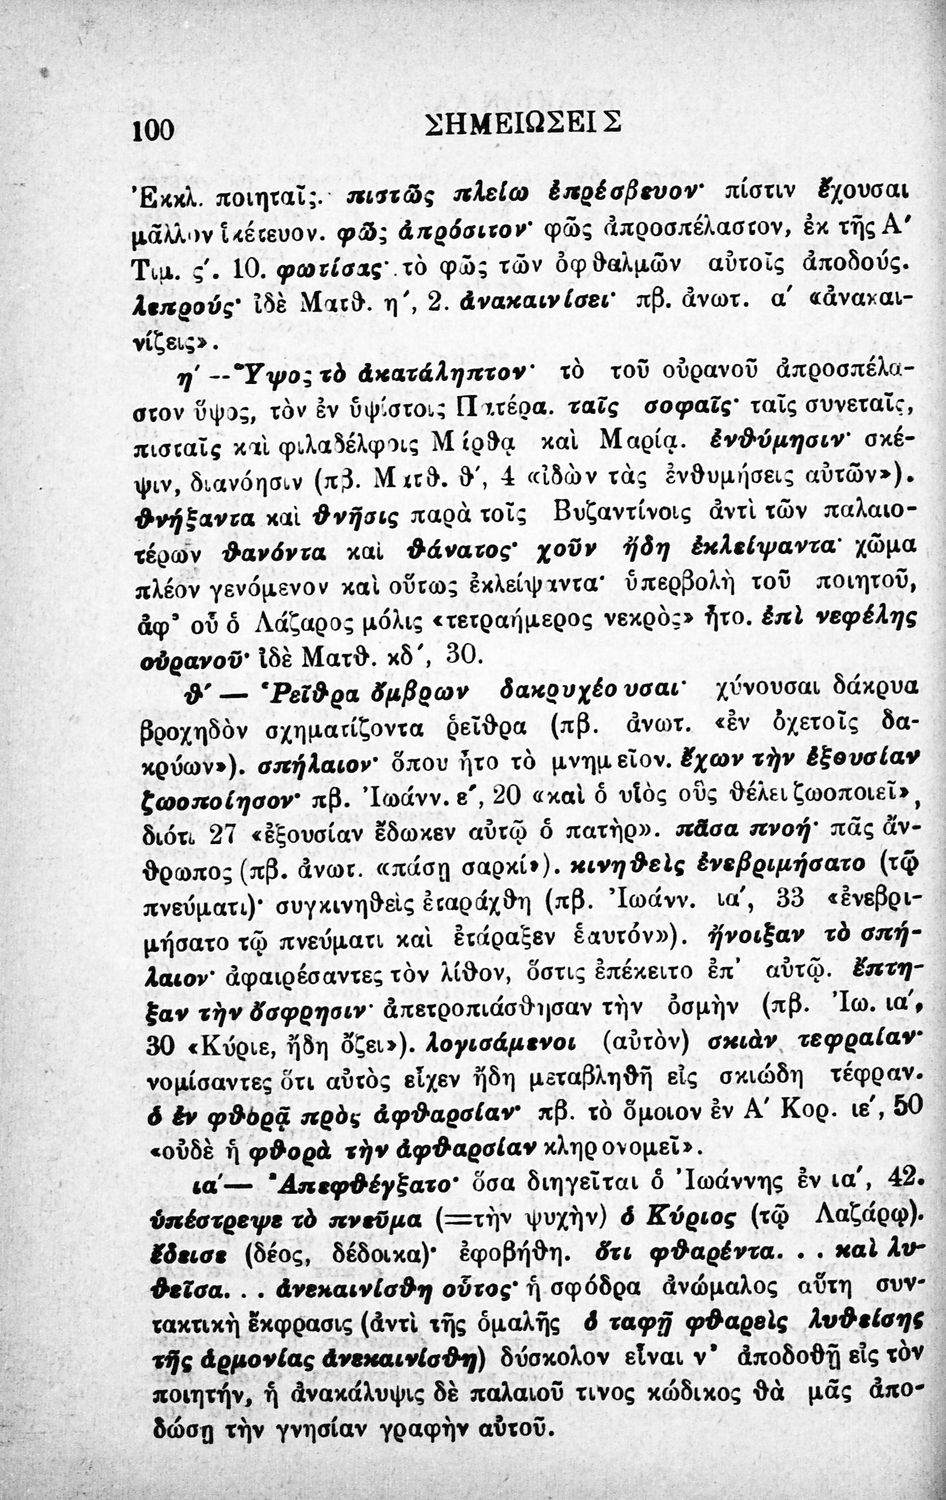 100 ΣΗΜΕΙΩΣΕΙΣ
Ἐκκλ. ποιηταῖς. πιστῶς πλείω ἐπρέσβευον· πίστιν ἔχουσαι
μᾶλλον ἱκέτευον. φῶς ἀπρόσιτον· φῶς ἀπροσπέλαστον, ἐκ τῆς Α΄
Τιμ. ς΄. 10. φωτίσας· τὸ φῶς τῶν ὀφθαλμῶν αὐτοῖς ἀποδούς.
λεπρούς· ἰδὲ Ματθ. η΄, 2. ἀνακαινίσει· πβ. ἀνωτ. α΄ «ἀνακαι-
νίζεις».
η΄ -- Ὕψος τὸ ἀκατάληπτον· τὸ τοῦ οὐρανοῦ ἀπροσπέλα-
στον ὕψος, τὸν ἐν ὑψίστοις Πατέρα. ταῖς σοφαῖς· ταῖς συνεταῖς,
πισταῖς καὶ φιλαδέλφοις Μάρθᾳ καὶ Μαρίᾳ. ἐνθύμησιν· σκέ-
ψιν, διανόησιν (πβ. Ματθ. θ΄, 4 «ἰδὼν τὰς ἐνθυμήσεις αὐτῶν»).
θνήξαντα καὶ θνῆσις παρὰ τοῖς Βυζαντίνοις ἀντὶ τῶν παλαιο-
τέρων θανόντα καὶ θάνατος· χοῦν ἤδη ἐκλείψαντα· χῶμα
πλέον γενόμενον καὶ οὕτως ἐκλείψαντα· ὑπερβολὴ τοῦ ποιητοῦ,
ἀφ' οὗ ὁ Λάζαρος μόλις «τετραήμερος νεκρὸς» ἦτο. ἐπὶ νεφέλης
οὐρανοῦ· ἰδὲ Ματθ. κδ΄, 30.
θ΄ — Ῥεῖθρα ὄμβρων δακρυχέουσαι· χύνουσαι δάκρυα
βροχηδὸν σχηματίζοντα ῥεῖθρα (πβ. ἀνωτ. «ἐν ὀχετοῖς δα-
κρύων»). σπήλαιον· ὅπου ἦτο τὸ μνημεῖον. ἔχων τὴν ἐξουσίαν
ζωοποίησον· πβ. Ἰωάνν. ε΄, 20 «καὶ ὁ υἱὸς οὓς θέλει ζωοποιεῖ»,
διότι 27 «ἐξουσίαν ἔδωκεν αὐτῷ ὁ πατὴρ». πᾶσα πνοή· πᾶς ἄν-
θρωπος (πβ. ἀνωτ. «πάσῃ σαρκί»). κινηθεὶς ἐνεβριμήσατο (τῷ
πνεύματι)· συγκινηθεὶς ἐταράχθη (πβ. Ἰωάνν. ια΄, 33 «ἐνεβρι-
μήσατο τῷ πνεύματι καὶ ἐτάραξεν ἑαυτόν»). ἤνοιξαν τὸ σπή-
λαιον· ἀφαιρέσαντες τὸν λίθον, ὅστις ἐπέκειτο ἐπ' αὐτῷ. ἔπτη-
ξαν τὴν ὄσφρησιν· ἀπετροπιάσθησαν τὴν ὀσμὴν (πβ. Ἰω. ια΄,
30 «Κύριε, ἤδη ὄζει»). λογισάμενοι (αὐτὸν) σκιὰν τεφραίαν·
νομίσαντες ὅτι αὐτὸς εἶχεν ἤδη μεταβληθῆ εἰς σκιώδη τέφραν.
ὁ ἐν φθορᾷ πρὸς ἀφθαρσίαν· πβ. τὸ ὅμοιον ἐν Α΄ Κορ. ιε΄, 50
«οὐδὲ ἡ φθορὰ τὴν ἀφθαρσίαν κληρονομεῖ».
ια΄— Ἀπεφθέγξατο· ὅσα διηγεῖται ὁ Ἰωάννης ἐν ια΄, 42.
ὑπέστρεψε τὸ πνεῦμα (=τὴν ψυχὴν) ὁ Κύριος (τῷ Λαζάρῳ).
ἔδεισε (δέος, δέδοικα)· ἐφοβήθη. ὅτι φθαρέντα. . . καὶ λυ-
θεῖσα. . . ἀνεκαινίσθη οὗτος· ἡ σφόδρα ἀνώμαλος αὕτη συν-
τακτικὴ ἔκφρασις (ἀντὶ τῆς ὁμαλῆς ὁ ταφῇ φθαρεὶς λυθείσης
τῆς ἁρμονίας ἀνεκαινίσθη) δύσκολον εἶναι ν' ἀποδοθῇ εἰς τὸν
ποιητήν, ἡ ἀνακάλυψις δὲ παλαιοῦ τινος κώδικος θὰ μᾶς ἀπο-
δώσῃ τὴν γνησίαν γραφὴν αὐτοῦ.